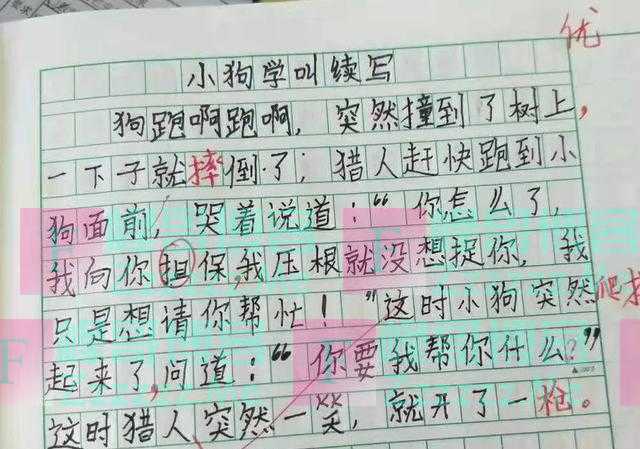 优
小狗学叫续写
狗跑啊跑啊，突然撞到了树上，
一下子就摔倒了；猎人赶快跑到小
狗面前，哭着说道：“你怎么了，
我向你担保，我压根就没想捉你，我
只是想请你帮忙！”这时小狗突然爬
起来了，问道：“你要我帮你什么？”
这时猎人突然一笑，就开了一枪。